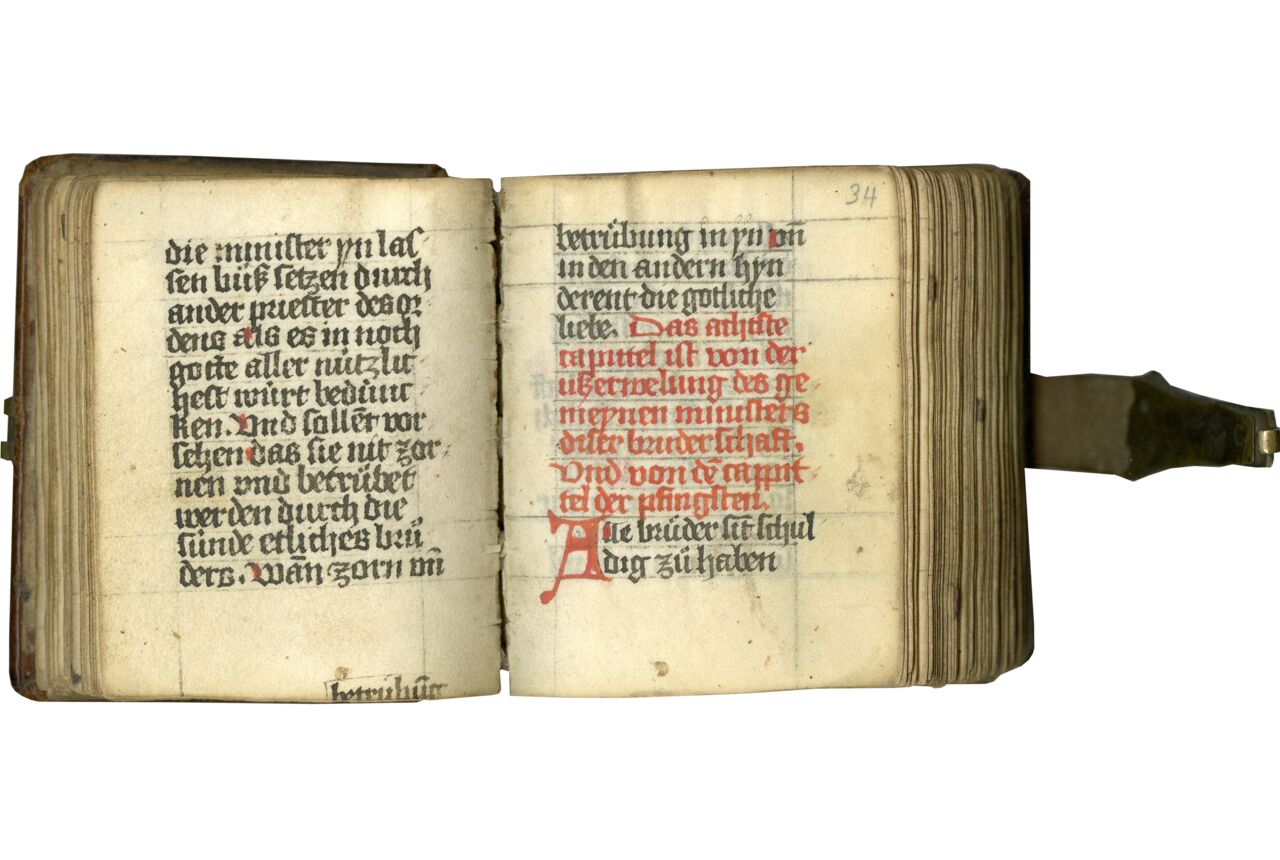 die minister yn las
sen büß setzen durch
ander priester des or
dens als es in noch
gotte aller nützlic
hest würt bedunc
ken. Vnd sollēt vor
sehen das sie nit zor
nen vnd betrübet
werden durch die
sünde etliches brü
ders. Wan̄ zorn vn̄
betrübūg
34
betrübung in yn vn̄
in den andern hyn
derent die gotliche
liebe. Das achste
capittel ist von der
ußerwelung des ge
meynen ministers
diser bruderschaft.
Vnd von dē cappit
tel der pfingsten.
Alle brüder sīt schul
dig zü haben